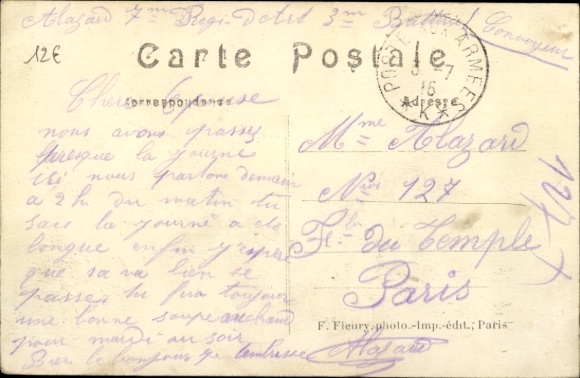 Alazard 7me Regi-d'Art 3me Batterie Convoyeur
12€
Carte Postale
POSTE AUX ARMEES
-7
15
* K *
Correspondance
Adresse
Chere Epouse
nous avons passer
presque la journe
ici nous partons demain
a 2h du matin tu
sais la journé a ete
longue enfin j'espere
que sa va bien se
passer tu fera toujours
une bonne soupe au chaud
pour mardi au soir
Bien le bonjour je tembrasse
Alazard
Mme Alazard
Nros 127
Fb du Temple
Paris
127
F. Fleury, photo.-Imp.-édit., Paris